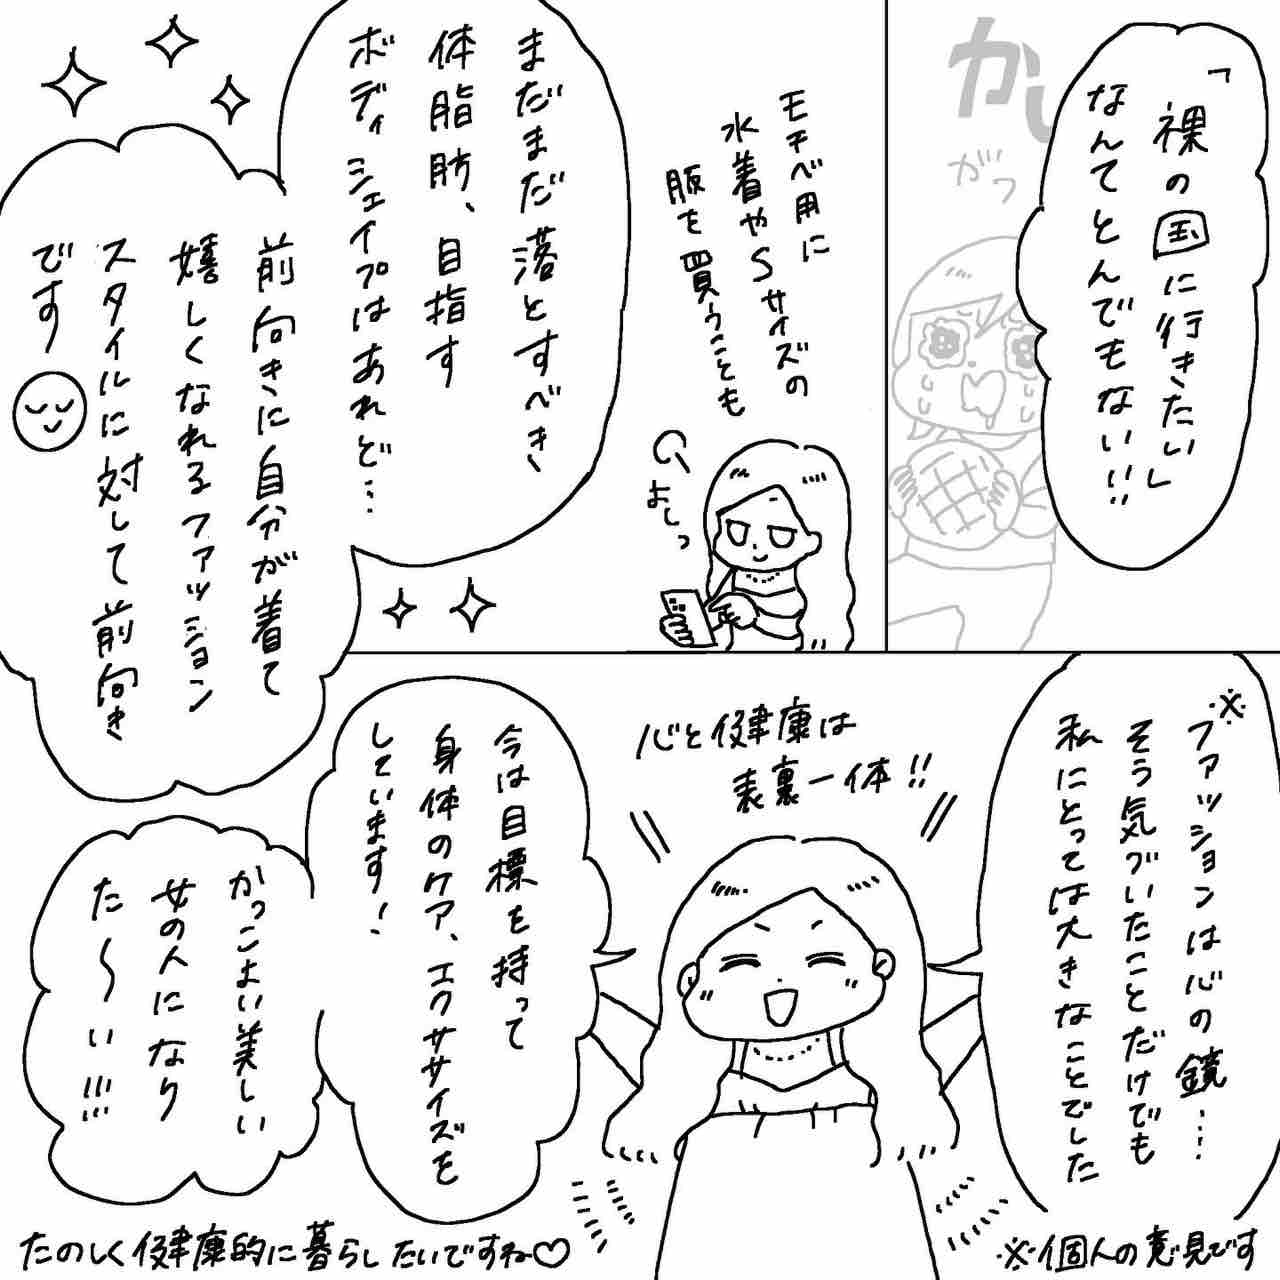 「裸の国に行きたい」
なんてとんでもない!!
がつ
モチベ用に
水着やSサイズの
服を買うことも
よしっ
まだまだ落とすべき
体脂肪、目指す
ボディシェイプはあれど…
前向きに自分が着て
嬉しくなれるファッション
スタイルに対して前向き
です
※ファッションは心の鏡…
そう気づいたことだけでも
私にとっては大きなことでした
心と健康は
表裏一体!!
今は目標を持って
身体のケア、エクササイズを
しています!
かっこよい美しい
女の人になり
た〜い!!!
※個人の意見です
たのしく健康的に暮らしたいですね♡